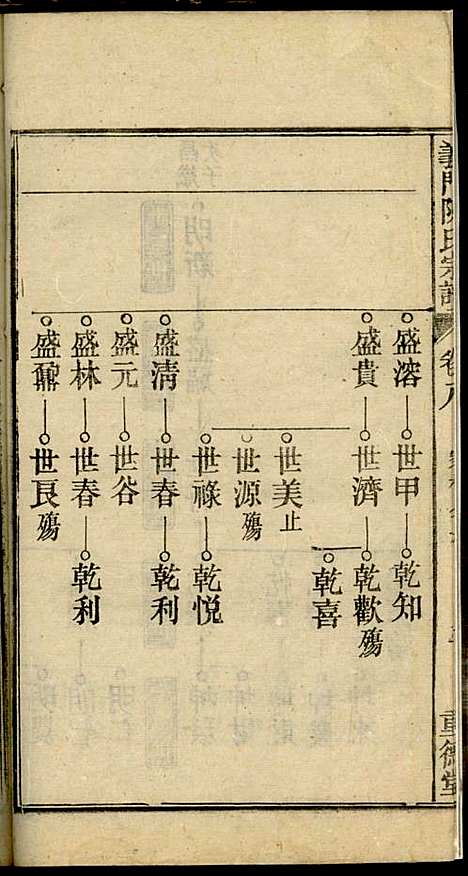 義門陳氏宗譜 卷八
重德堂
盛溶 世甲 乾知
盛貴 世濟 乾歡殤
乾喜
世美止
世源殤
世祿 乾悅
盛清 世春 乾利
盛元 世谷
盛林 世春 乾利
盛鼐 世良殤